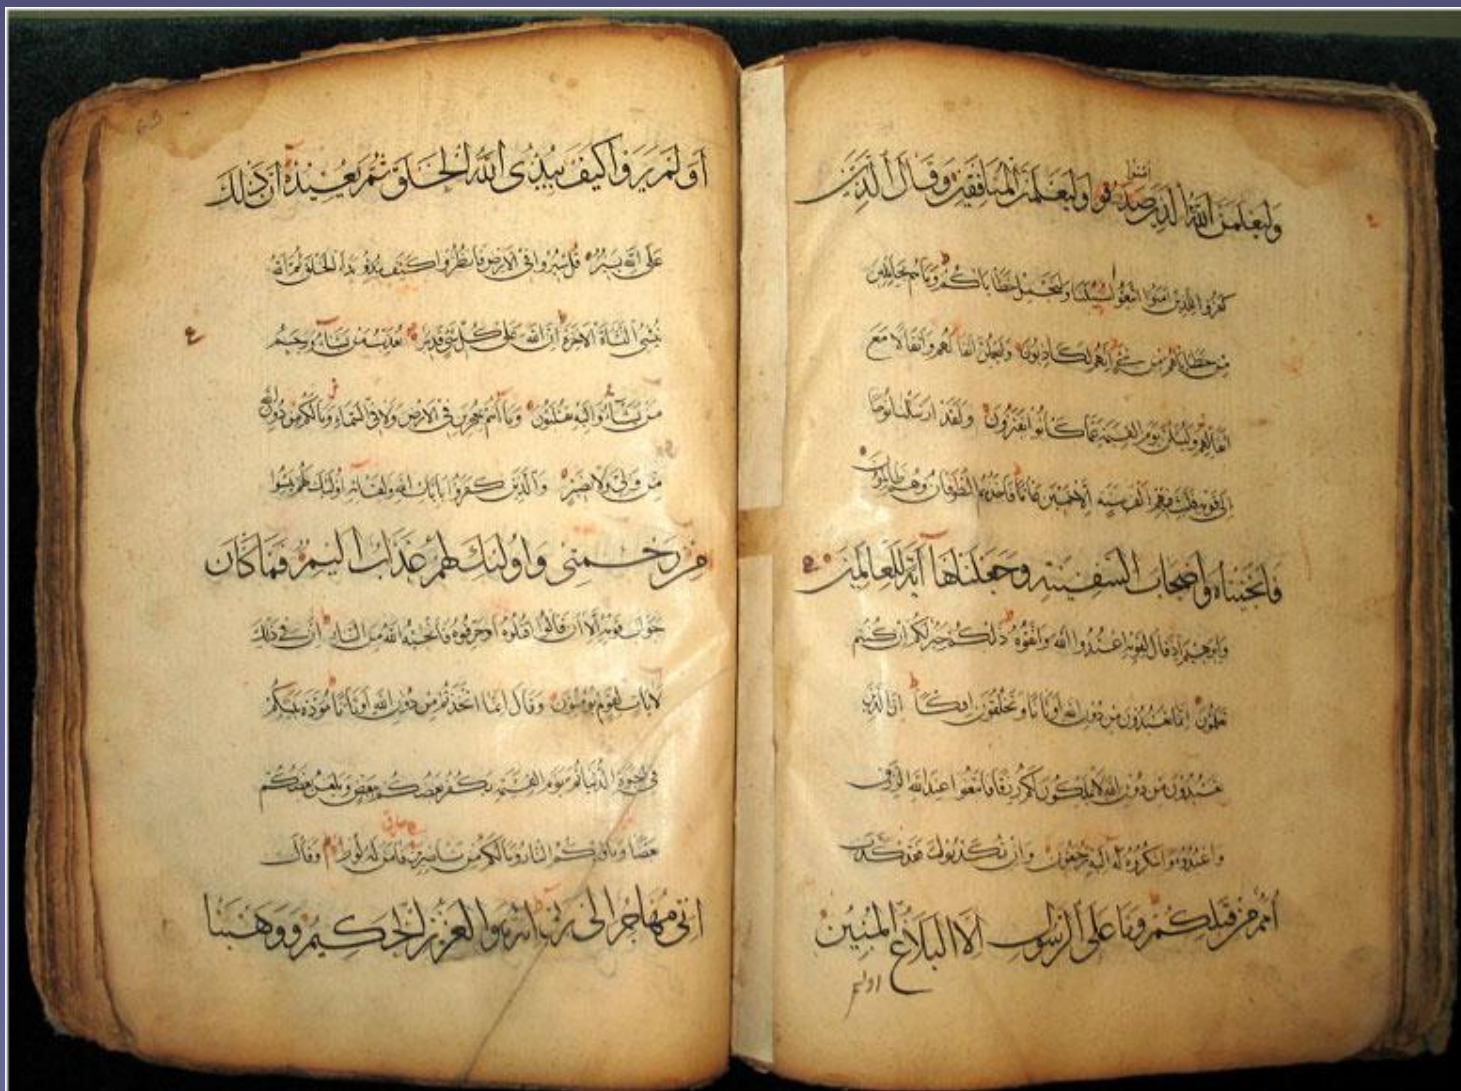 امنوا
وليعلمن الله الذين صدقوا وليعلمن المنافقين وقال الذين
كفروا للذين امنوا اتبعوا سبيلنا ولنحمل خطاياكم وما هم بحاملين
من خطاياهم من شئ انهم لكاذبون وليحملن اثقالهم واثقالا مع
اثقالهم وليسئلن يوم القيمة عما كانوا يفترون ولقد ارسلنا نوحا
الى قومه فلبث فيهم الف سنة الا خمسين عاما فاخذهم الطوفان وهم ظالمون
فانجيناه واصحاب السفينة وجعلناها آية للعالمين
وابرهيم اذ قال لقومه اعبدوا الله واتقوه ذلكم خير لكم ان كنتم
تعلمون انما تعبدون من دون الله اوثانا وتخلقون افكا ان الذين
تعبدون من دون الله لا يملكون لكم رزقا فابتغوا عند الله الرزق
واعبدوه واشكروا له اليه ترجعون وان تكذبوا فقد كذب
امم من قبلكم وما على الرسول الا البلاغ المبين
اولم
اولم يروا كيف يبدئ الله الخلق ثم يعيده ان ذلك
على الله يسير قل سيروا فى الارض فانظروا كيف بدؤ الخلق ثم الله
ينشئ النشأة الاخرة ان الله على كل شئ قدير يعذب من يشاء ويرحم
من يشاء واليه تقلبون وما انتم بمعجزين فى الارض ولا فى السماء وما لكم من دون الله
من ولى ولا نصير والذين كفروا بايات الله ولقائه اولئك يئسوا
من رحمتى واولئك لهم عذاب اليم فما كان
جواب قومه الا ان قالوا اقتلوه او حرقوه فانجيه الله من النار ان فى ذلك
لايات لقوم يؤمنون وقال انما اتخذتم من دون الله اوثانا مودة بينكم
فى الحيوة الدنيا ثم يوم القيمة يكفر بعضكم ببعض ويلعن بعضكم
بعضا ومأويكم النار وما لكم من ناصرين فامن له لوط وقال
انى مهاجر الى ربى انه هو العزيز الحكيم ووهبنا